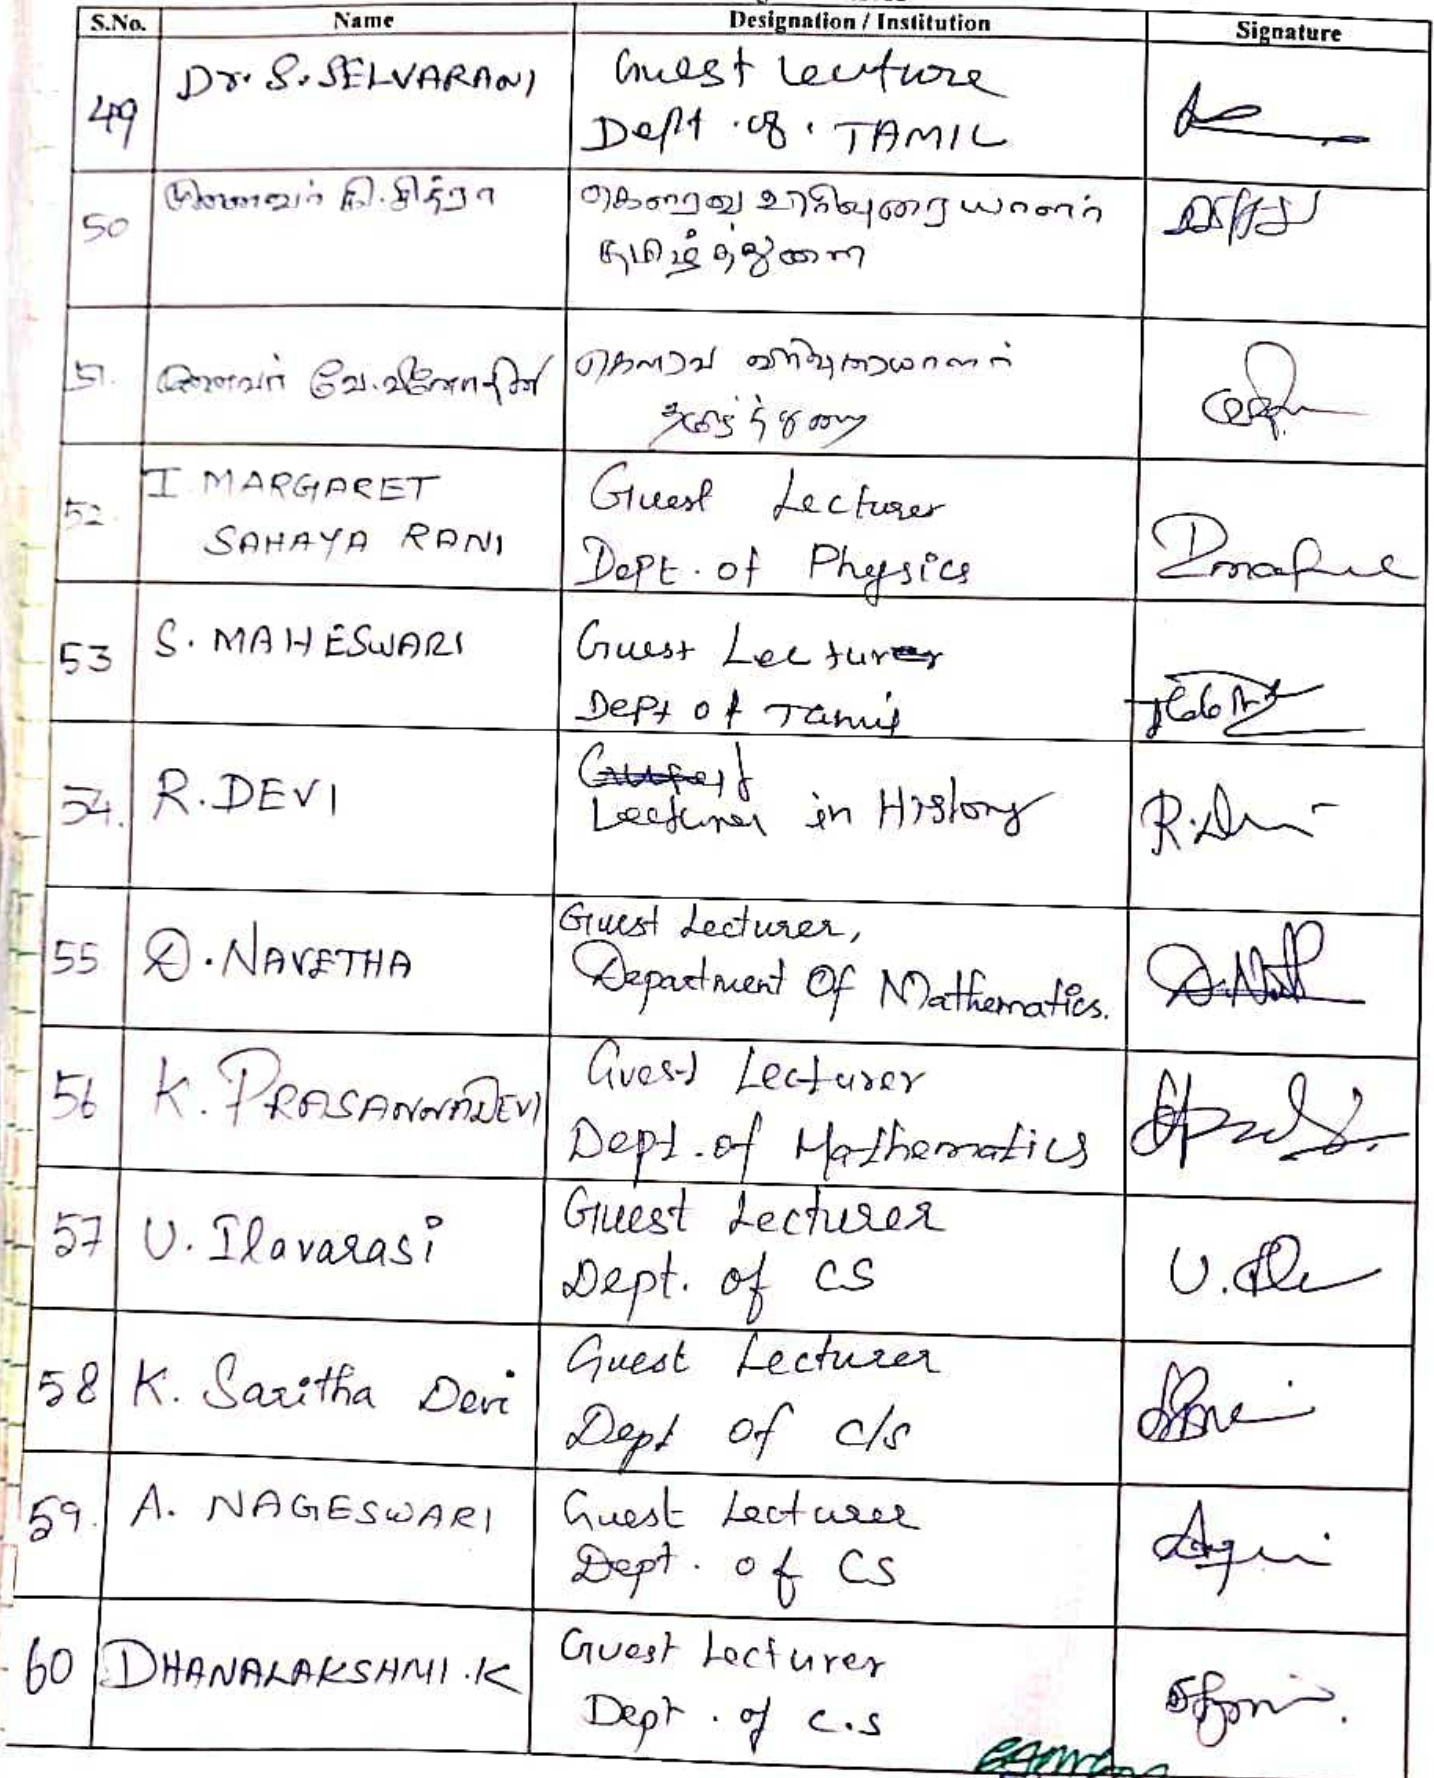 S.No. Name Designation / Institution Signature
49 Dr. S. SELVARANI Guest Lecture
Dept. of. TAMIL
50 முனைவர் நி.சித்ரா கௌரவ விரிவுரையாளர்
தமிழ்த்துறை
51. முனைவர் வே. கௌரவ விரிவுரையாளர்
தமிழ்த்துறை
52. I MARGARET Guest Lecturer
SAHAYA RANI Dept. of Physics
53 S. MAHESWARI Guest Lecturer
Dept of Tamil
54. R. DEVI Guest
Lecturer in History R. Devi
55 D. NAVETHA Guest Lecturer,
Department Of Mathematics.
56 K. PRASANNADEVI Guest Lecturer
Dept. of Mathematics
57 U. Ilavarasi Guest Lecturer
Dept. of CS
58 K. Saritha Devi Guest Lecturer
Dept of C/S
59. A. NAGESWARI Guest Lecturer
Dept. of CS
60 DHANALAKSHMI .K Guest Lecturer
Dept. of C.S